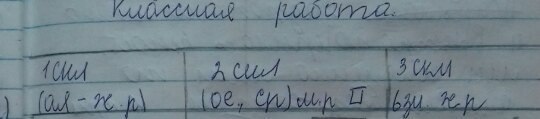 Классная работа.
1 скл 2 скл 3 скл
(ая - ж.р) (ое, ср) м.р □ ьзн. ж.р